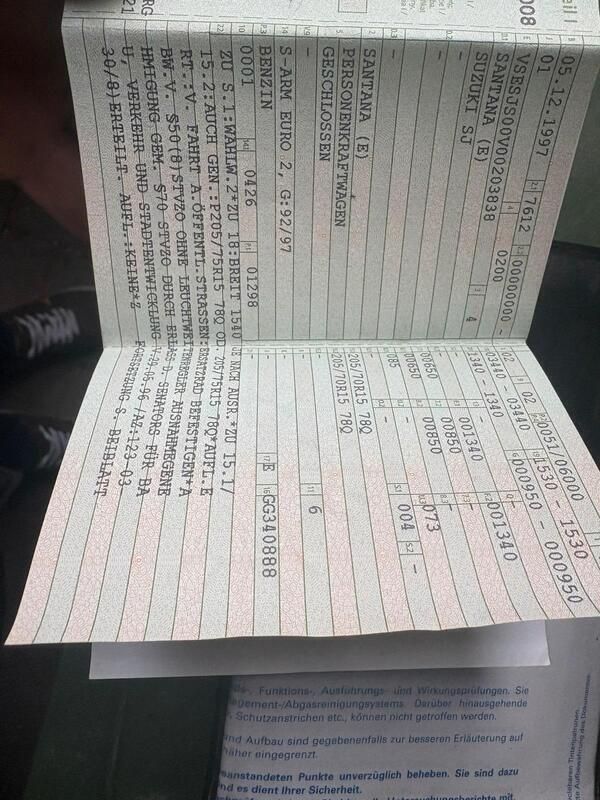 05.12.1997 7612 00000000 -
01 0200
VSESJS00V00203838
SANTANA (E)
SUZUKI SJ 4
-
-
SANTANA (E)
PERSONENKRAFTWAGEN
GESCHLOSSEN
-
S-ARM EURO 2, G:92/97
BENZIN
0001 0426 01298
ZU S.1:WAHLW.2*ZU 18:BREIT 1540 JE NACH AUSR.*ZU 15.1/
15.2:AUCH GEN.:P205/75R15 78Q OD. 205/75R15 78Q*AUFL.E
RT.:V. FAHRT A.ÖFFENTL.STRASSEN:ERSATZRAD BEFESTIGEN*A
BW.V. §50(8)STVZO OHNE LEUCHTWEITENREGLER AUSNAHMEGENE
HMIGUNG GEM. §70 STVZO DURCH ERLASS D. SENATORS FÜR BA
U, VERKEHR UND STADTENTWICKLUNG V.29.05.96 /AZ:123-03-
30/8/ERTEILT. AUFL.:KEINE*Z FORTSETZUNG S. BEIBLATT
02 02 0051/06000
03440 - 03440 1530 - 1530
1340 - 1340 000950 - 000950
- 001340 001340
00650 00850 -
00650 00850 073
085 - 004 -
-
205/70R15 78Q
205/70R15 78Q
-
- 6
-
- E GG340888
Funktions-, Ausführungs- und Wirkungsprüfungen. Sie
Darüber hinausgehende
Schutzanstrichen etc., können nicht getroffen werden.
und Aufbau sind gegebenenfalls zur besseren Erläuterung auf
näher eingegrenzt.
beanstandeten Punkte unverzüglich beheben. Sie sind dazu
und es dient Ihrer Sicherheit.